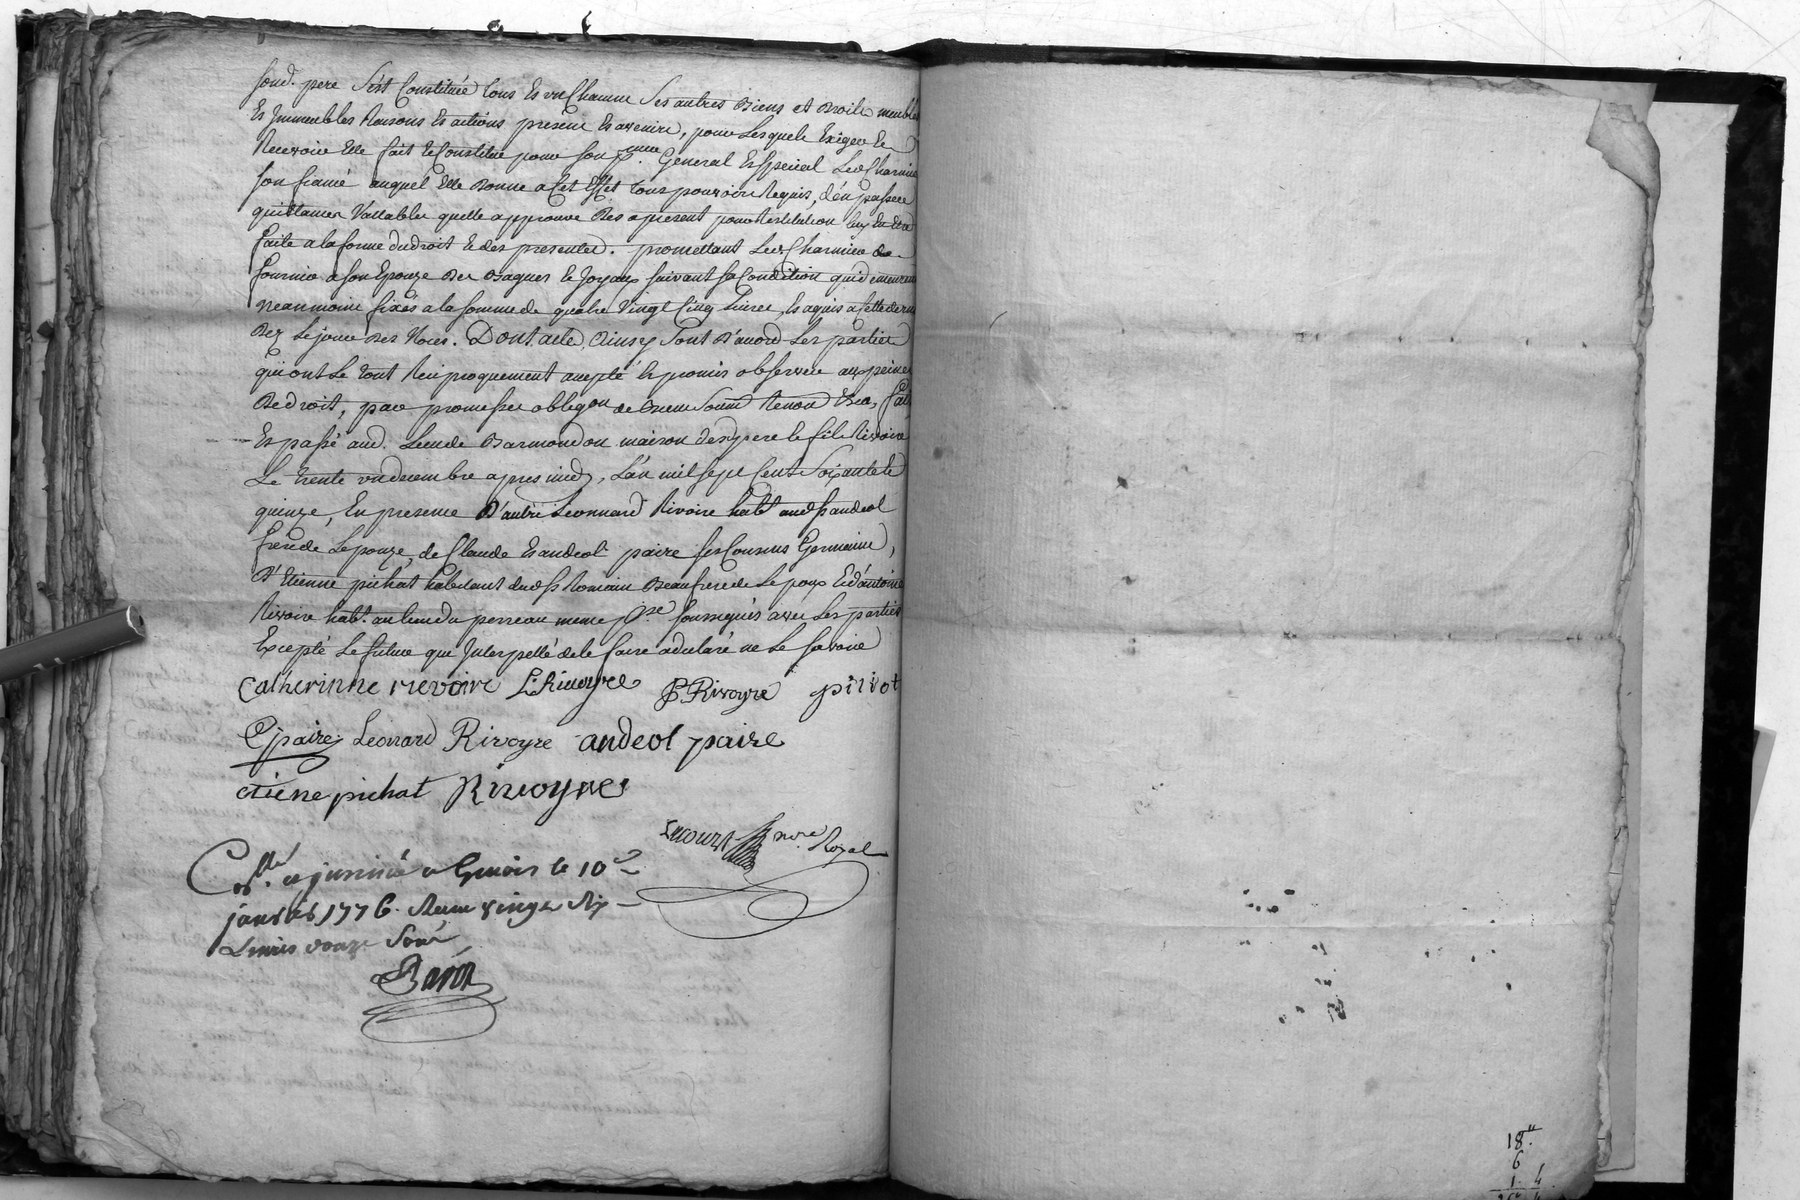 sond. pere s'est Constituée tous Es un Chacun ses autres Biens et Droits meubles
Es Immeubles Raisons Es actions present Es avenire, pour Lesquels Exiger Ee
Recevoir Elle fait Ee Constitue pour son General Es special Led Charmier
son fiancé auquel Elle Donne a Cet Effet tous pouvoir Requis, d'en passer
quittances Vallables quelle approuve Des apresent pour Restitution luy En Etre
faite a la forme du droit Ee des presentes. promettant Led Charmier de
fournir a son Epouze Des Bagues Ee Joyaux suivant sa Condition qui demeurent
neanmoins fixés a la somme de quatre Vingt Cinq Livres, Es aquis a Cette
Des Le jour Des Noces. Dont acte, Ainsy sont D'acord Les parties
qui ont Le tout Reciproquement accepté Es promis observer aux peines
De droit, par promesses obligon de Biens Soumi Renon Esa, fait
Es passé aud. Lieu de Barmondon maison desd pere Ee fils Rivoire
Le trente un decembre apres midy, L'an mil sept Cent Soixante Ee
quinze, En presence D'autre Leonnard Rivoire habt aud St andeol
frere de Lepouze, de Claude Es andeol paire ses Cousins Germains,
D'Etienne pichat habitant dud St Romain Beaufrere de Lepoux Ee d'antoine
Rivoire habt. au lieu du perreau meme pse soussignés avec Les parties
Excepté Le futur que Interpellé de le faire a declaré ne Le savoir
Catherinne revoire L. Rivoyre P Rivoyre pitiot
C paire Leonard Rivoyre andeol paire
etiene pichat Rivoyre
nore Royal
Collé. et
janvier 1776. Recu vingt six
Livres douze sous
18"
6
1. 4